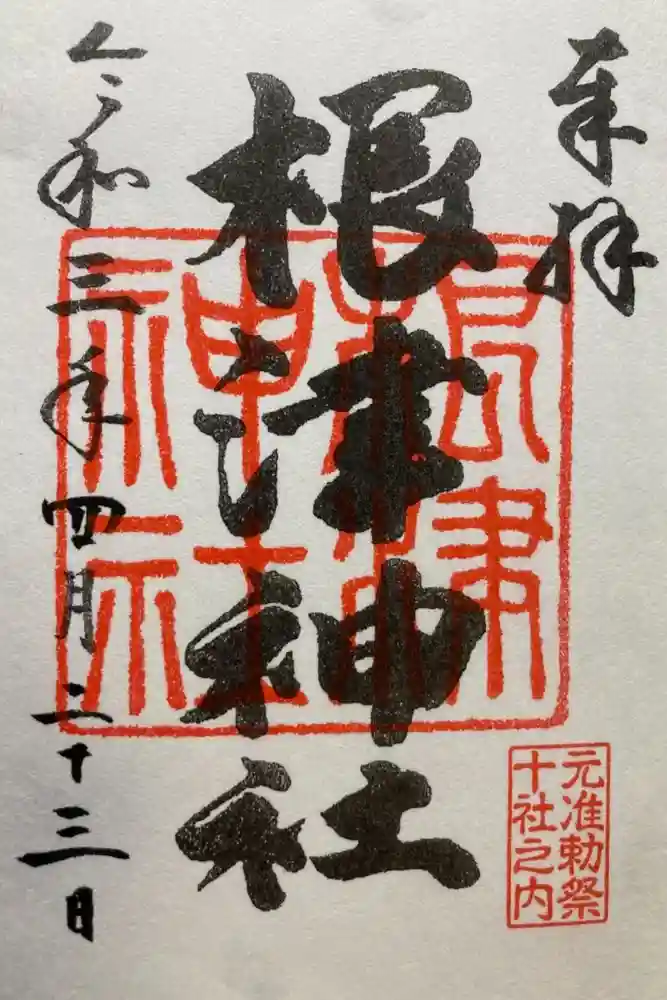 奉拝
根津神社
令和三年四月二十三日
根津
神社
元准勅祭
十社之内